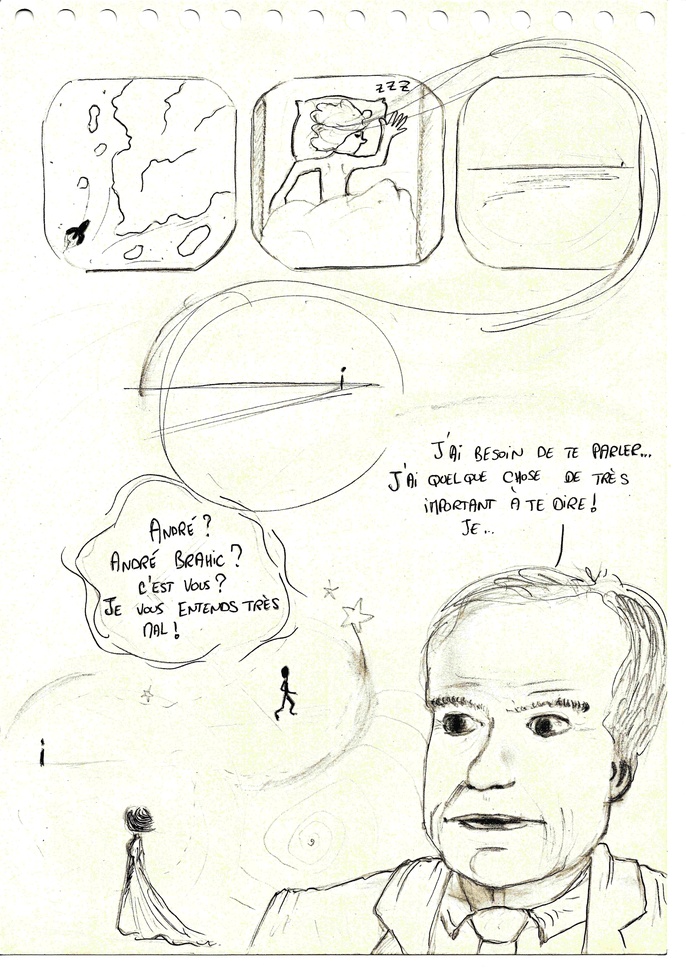 zzz
J'AI BESOIN DE TE PARLER...
J'AI QUELQUE CHOSE DE TRÈS
IMPORTANT À TE DIRE!
JE...
ANDRÉ?
ANDRÉ BRAHIC?
C'EST VOUS?
JE VOUS ENTENDS TRÈS
MAL!